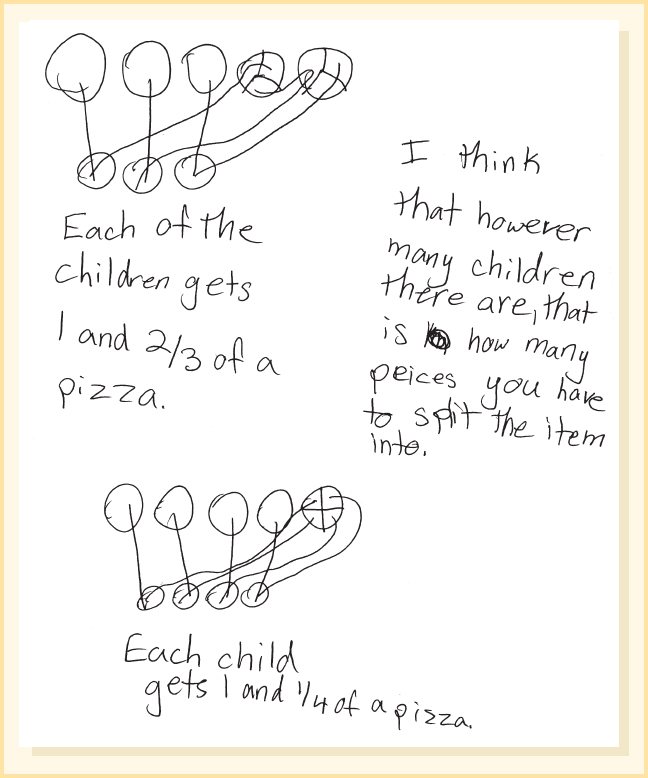 Each of the
children gets
1 and 2/3 of a
pizza.
I think
that however
many children
there are, that
is how many
peices you have
to split the item
into.
Each child
gets 1 and 1/4 of a pizza.